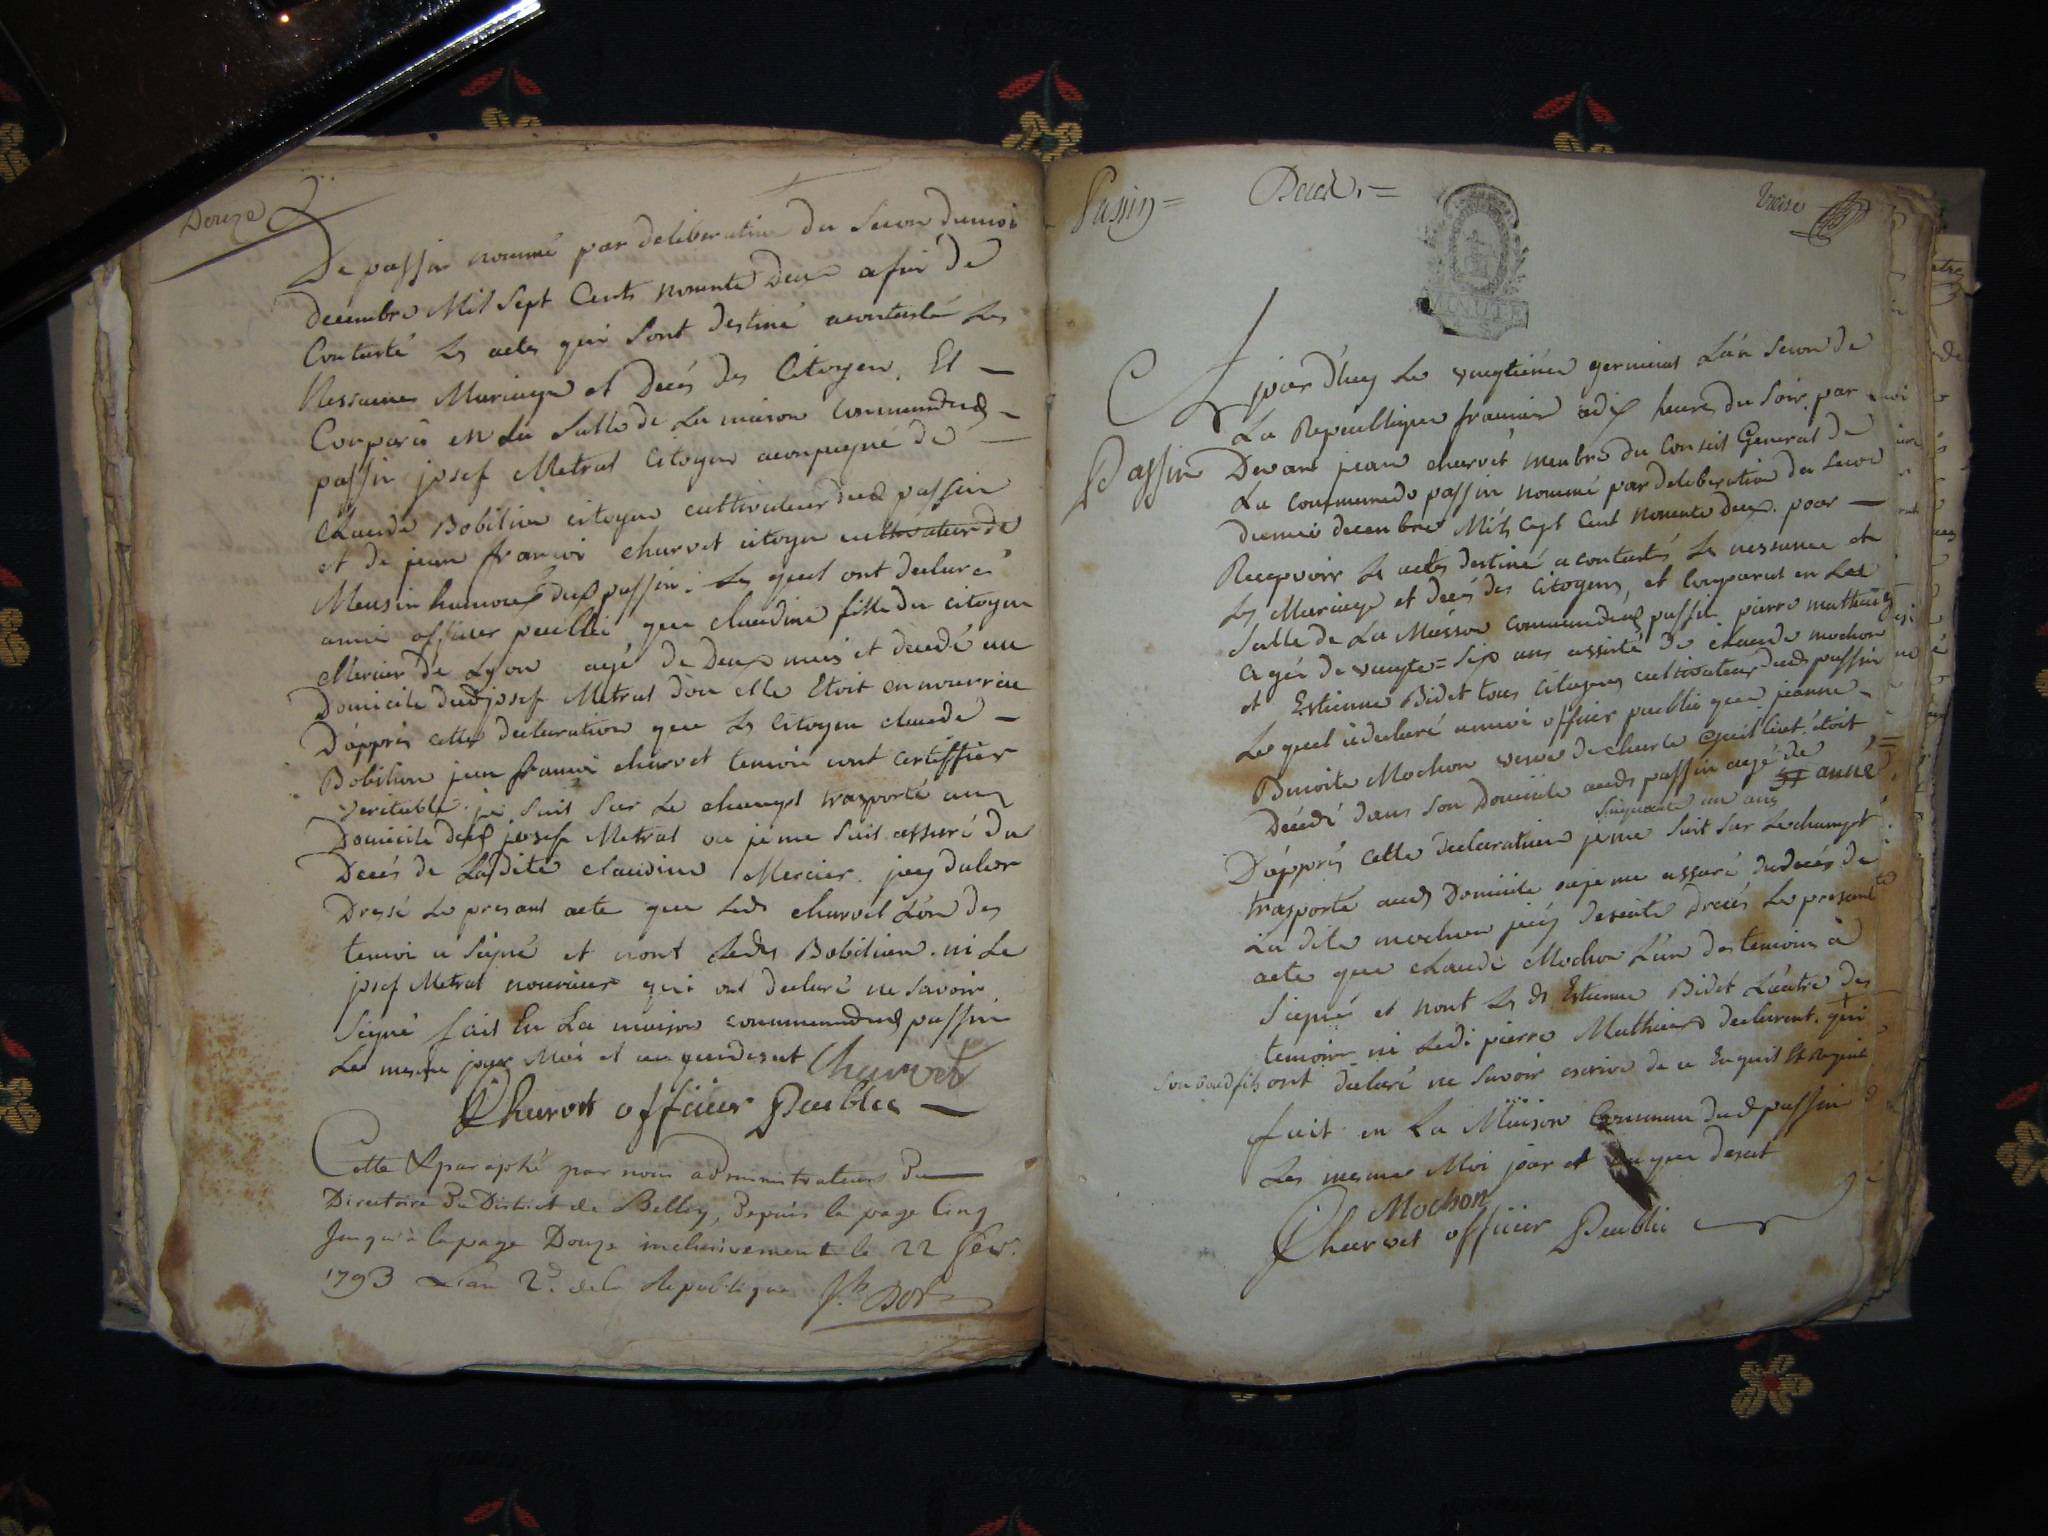 Douze
De passin nommé par deliberation du Secon du moi
decembre Mil Sept Cents nonente Deux afin de
Contasté Les actes qui sont destiné a contasté Les
Nessance Mariage et Decés des Citoyen. Et
Comparu en La Salle de La maison commune dud
passin josef Metral Citoyen acompagné de
Claude Bobilion citoyen cultivateur dud passin
et de jean francoi charvet citoyen cultivateur de
dud passin. Les quel ont declaré
a moi officier publi que claudine fille du citoyen
Mercier de Lyon agé de Deux mois et decedé au
Domicile dud josef Metral d'ou elle Etoit en nourrice
D'apprés cette declaration que Les citoyen claude
Bobilion jean francoi charvet temoin ont certiffier
veritable. je suit sur Le champt trasporté au
Domicile dud josef Metral ou je me suit assuré du
Decés de Ladite claudine Mercier. jey dalor
Dressé Le presant acte que Leds charvet L'un des
temoi a signé et nont Leds Bobilion. ni Le
josef Metral nouricier qui ont declaré ne savoir
signé fait En La maison commune dud passin
Les mesme jour Moi et an que desut Charvet
Charvet officier Publie
Cotté & paraphé par nous administrateurs Du
Directoire Du District de Belley, Depuis la page Cinq
Jusqu'à la page Douze inclusivement le 22 fevr.
1793 L'an 2d. de la Republique
Passin = Decés. = treize
MINUTE
Cejourd'huy Le vingtiéme germinal L'an Secon de
La Republique francaise a dix heures du Soir par
Passin Devant jean charvet membre du Conseil General de
La commune de passin nommé par deliberation du Secon
du moi decembre Mil Cept Cent nonente deux. pour
Recepvoir Les actes destiné a contasté Les nessance et
Les Mariage et decés des Citoyens, et Comparut en Las
Salle de La Maison commune dud passin pierre mathieu
agé de vingte = Six ans assisté De claude mochon
et Estienne Bidet tous Citoyens cultivateur dud passin
Le quel a declaré a moi officier publie que jeanne
Benoite Mochon veuve de charle étoit
Décédé dans son Domicile auds passin agé de 51 anné
Sinquante un ans
D'apprés cette declaration je me suit sur Le champt
trasporté auds Domicile ou je me assuré du decés de
La dite mochon jéy desuite Dressé Le presant
acte que claude Mochon L'un des temoins à
signé et nont Les ds Estienne Bidet L'autre des
temoin ni Ledi pierre Mathieu declarent. qui
ont declaré ne savoir escrire de ce Enquit Et
fait en La Maison Commune dud passin
Les mesme Moi jour et an que desut
Mochon
Charvet officier Publie